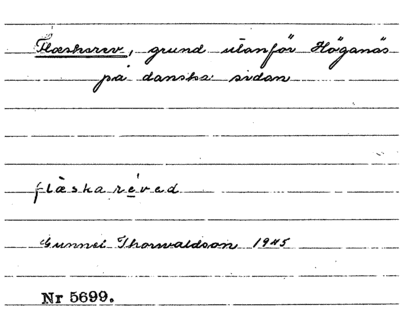 Flæskarev, grund utanför Höganäs
på danska sidan
flæskaréved
Gunnel Thorwaldson 1945
Nr 5699.